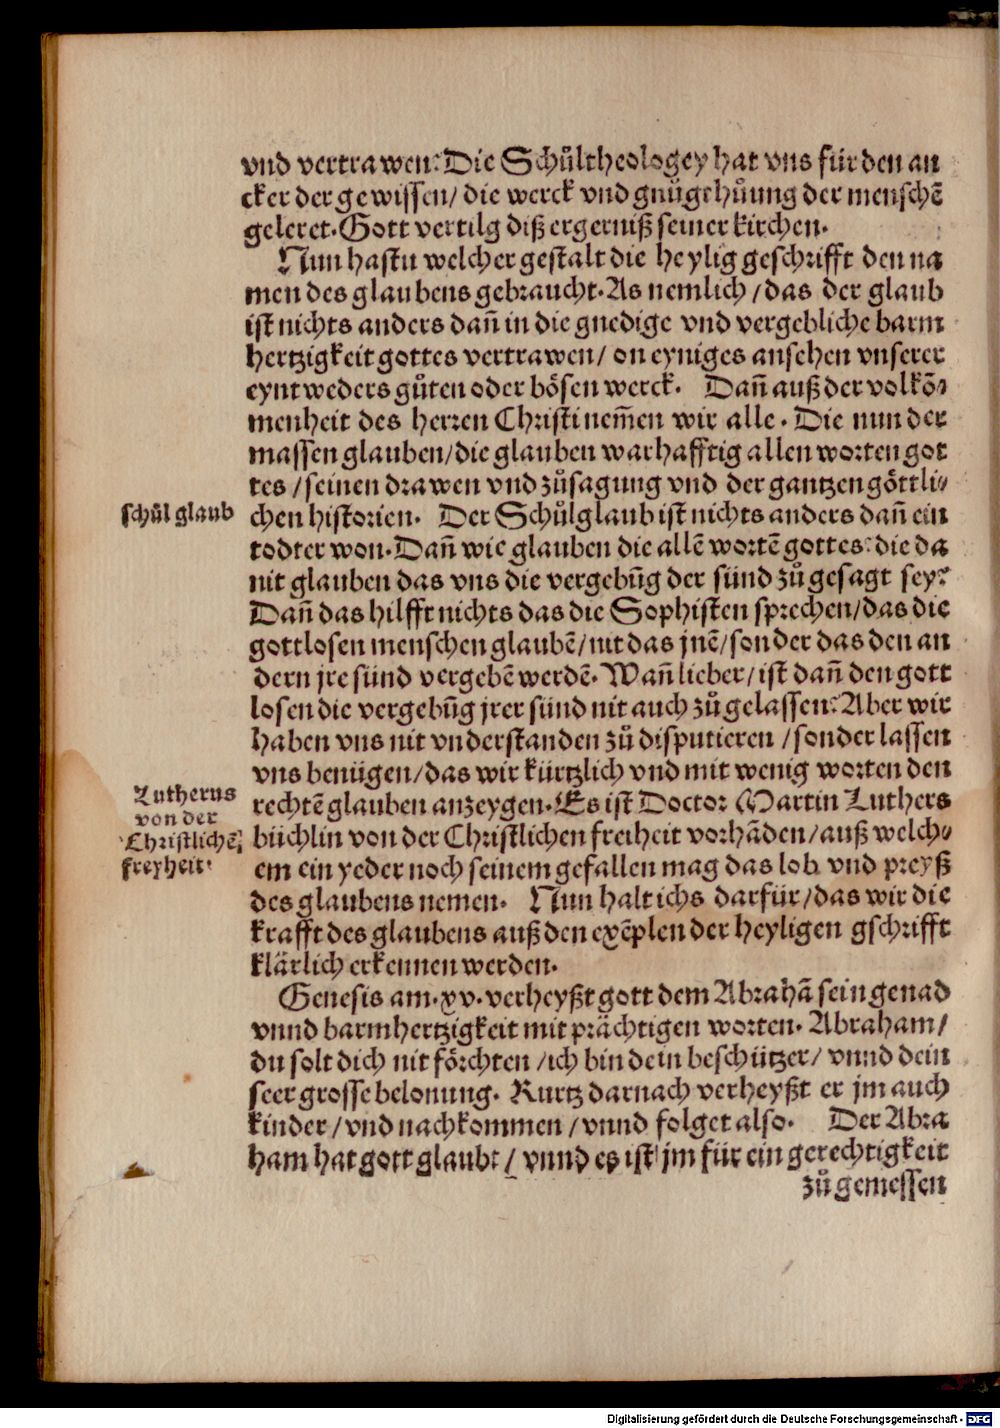 vnd vertrawen? Die Schůltheologey hat vns für den an
cker der gewissen/ die werck vnd gnůgthůung der menschē
geleret. Gott vertilg diß ergerniß seiner kirchen.
Nun hastu welcher gestalt die heylig geschrifft den na
men des glaubens gebraucht. As nemlich/ das der glaub
ist nichts anders dañ in die gnedige vnd vergebliche barm
hertzigkeit gottes vertrawen/ on eyniges ansehen vnserer
eyntweders gůten oder bösen werck. Dañ auß der volkō⸗
menheit des herren Christi nem̃en wir alle. Die nun der
massen glauben/ die glauben warhafftig allen worten got
tes/ seinen drawen vnd zůsagung vnd der gantzen göttli⸗
schůl glaub
chen historien. Der Schůlglaub ist nichts anders dañ ein
todter won. Dañ wie glauben die allē wortē gottes? die da
nit glauben das vns die vergebũg der sünd zůgesagt sey?
Dañ das hilfft nichts das die Sophisten sprechen/ das die
gottlosen menschen glaubē/ nit das jnē/ sonder das den an
dern jre sünd vergebē werdē. Wañ lieber/ ist dañ den gott
losen die vergebũg jrer sünd nit auch zůgelassen? Aber wir
haben vns nit vnderstanden zů disputieren/ sonder lassen
vns benügen/ das wir kürtzlich vnd mit wenig worten den
Lutherus
von der
Christlichē
freyheit.
rechtē glauben anzeygen. Es ist Doctor Martin Luthers
büchlin von der Christlichen freiheit vorhāden/ auß welch⸗
em ein yeder noch seinem gefallen mag das lob vnd preyß
des glaubens nemen. Nun halt ichs darfür/ das wir die
krafft des glaubens auß den exēplen der heyligen gschrifft
klärlich erkennen werden.
Genesis am .xv. verheyßt gott dem Abrahā sein genad
vnnd barmhertzigkeit mit prächtigen worten. Abraham/
du solt dich nit förchten/ ich bin dein beschützer/ vnnd dein
seer grosse belonung. Kurtz darnach verheyßt er jm auch
kinder/ vnd nachkommen/ vnnd folget also. Der Abra
ham hat gott glaubt/ vnnd es ist jm für ein gerechtigkeit
zůgemessen
Digitalisierung gefördert durch die Deutsche Forschungsgemeinschaft - DFG